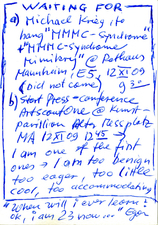 WAITING FOR
a) Michael Krieg to
hang "MMMC-Syndrome"
+ "MMMC-syndrome
Mimikery" @ Rathaus
Mannheim, E5, 12 XI 09
(Did not come) 9 30
b) Start Press-conference
ArtscoutOne @ Kunst-
pavillion Messplatz
MA 12 XI 09 12 45
I am one of the first
ones → I am too benign
too eager, too little
cool, too accommodating
"When will i ever learn?
ok, i am 23 now..."